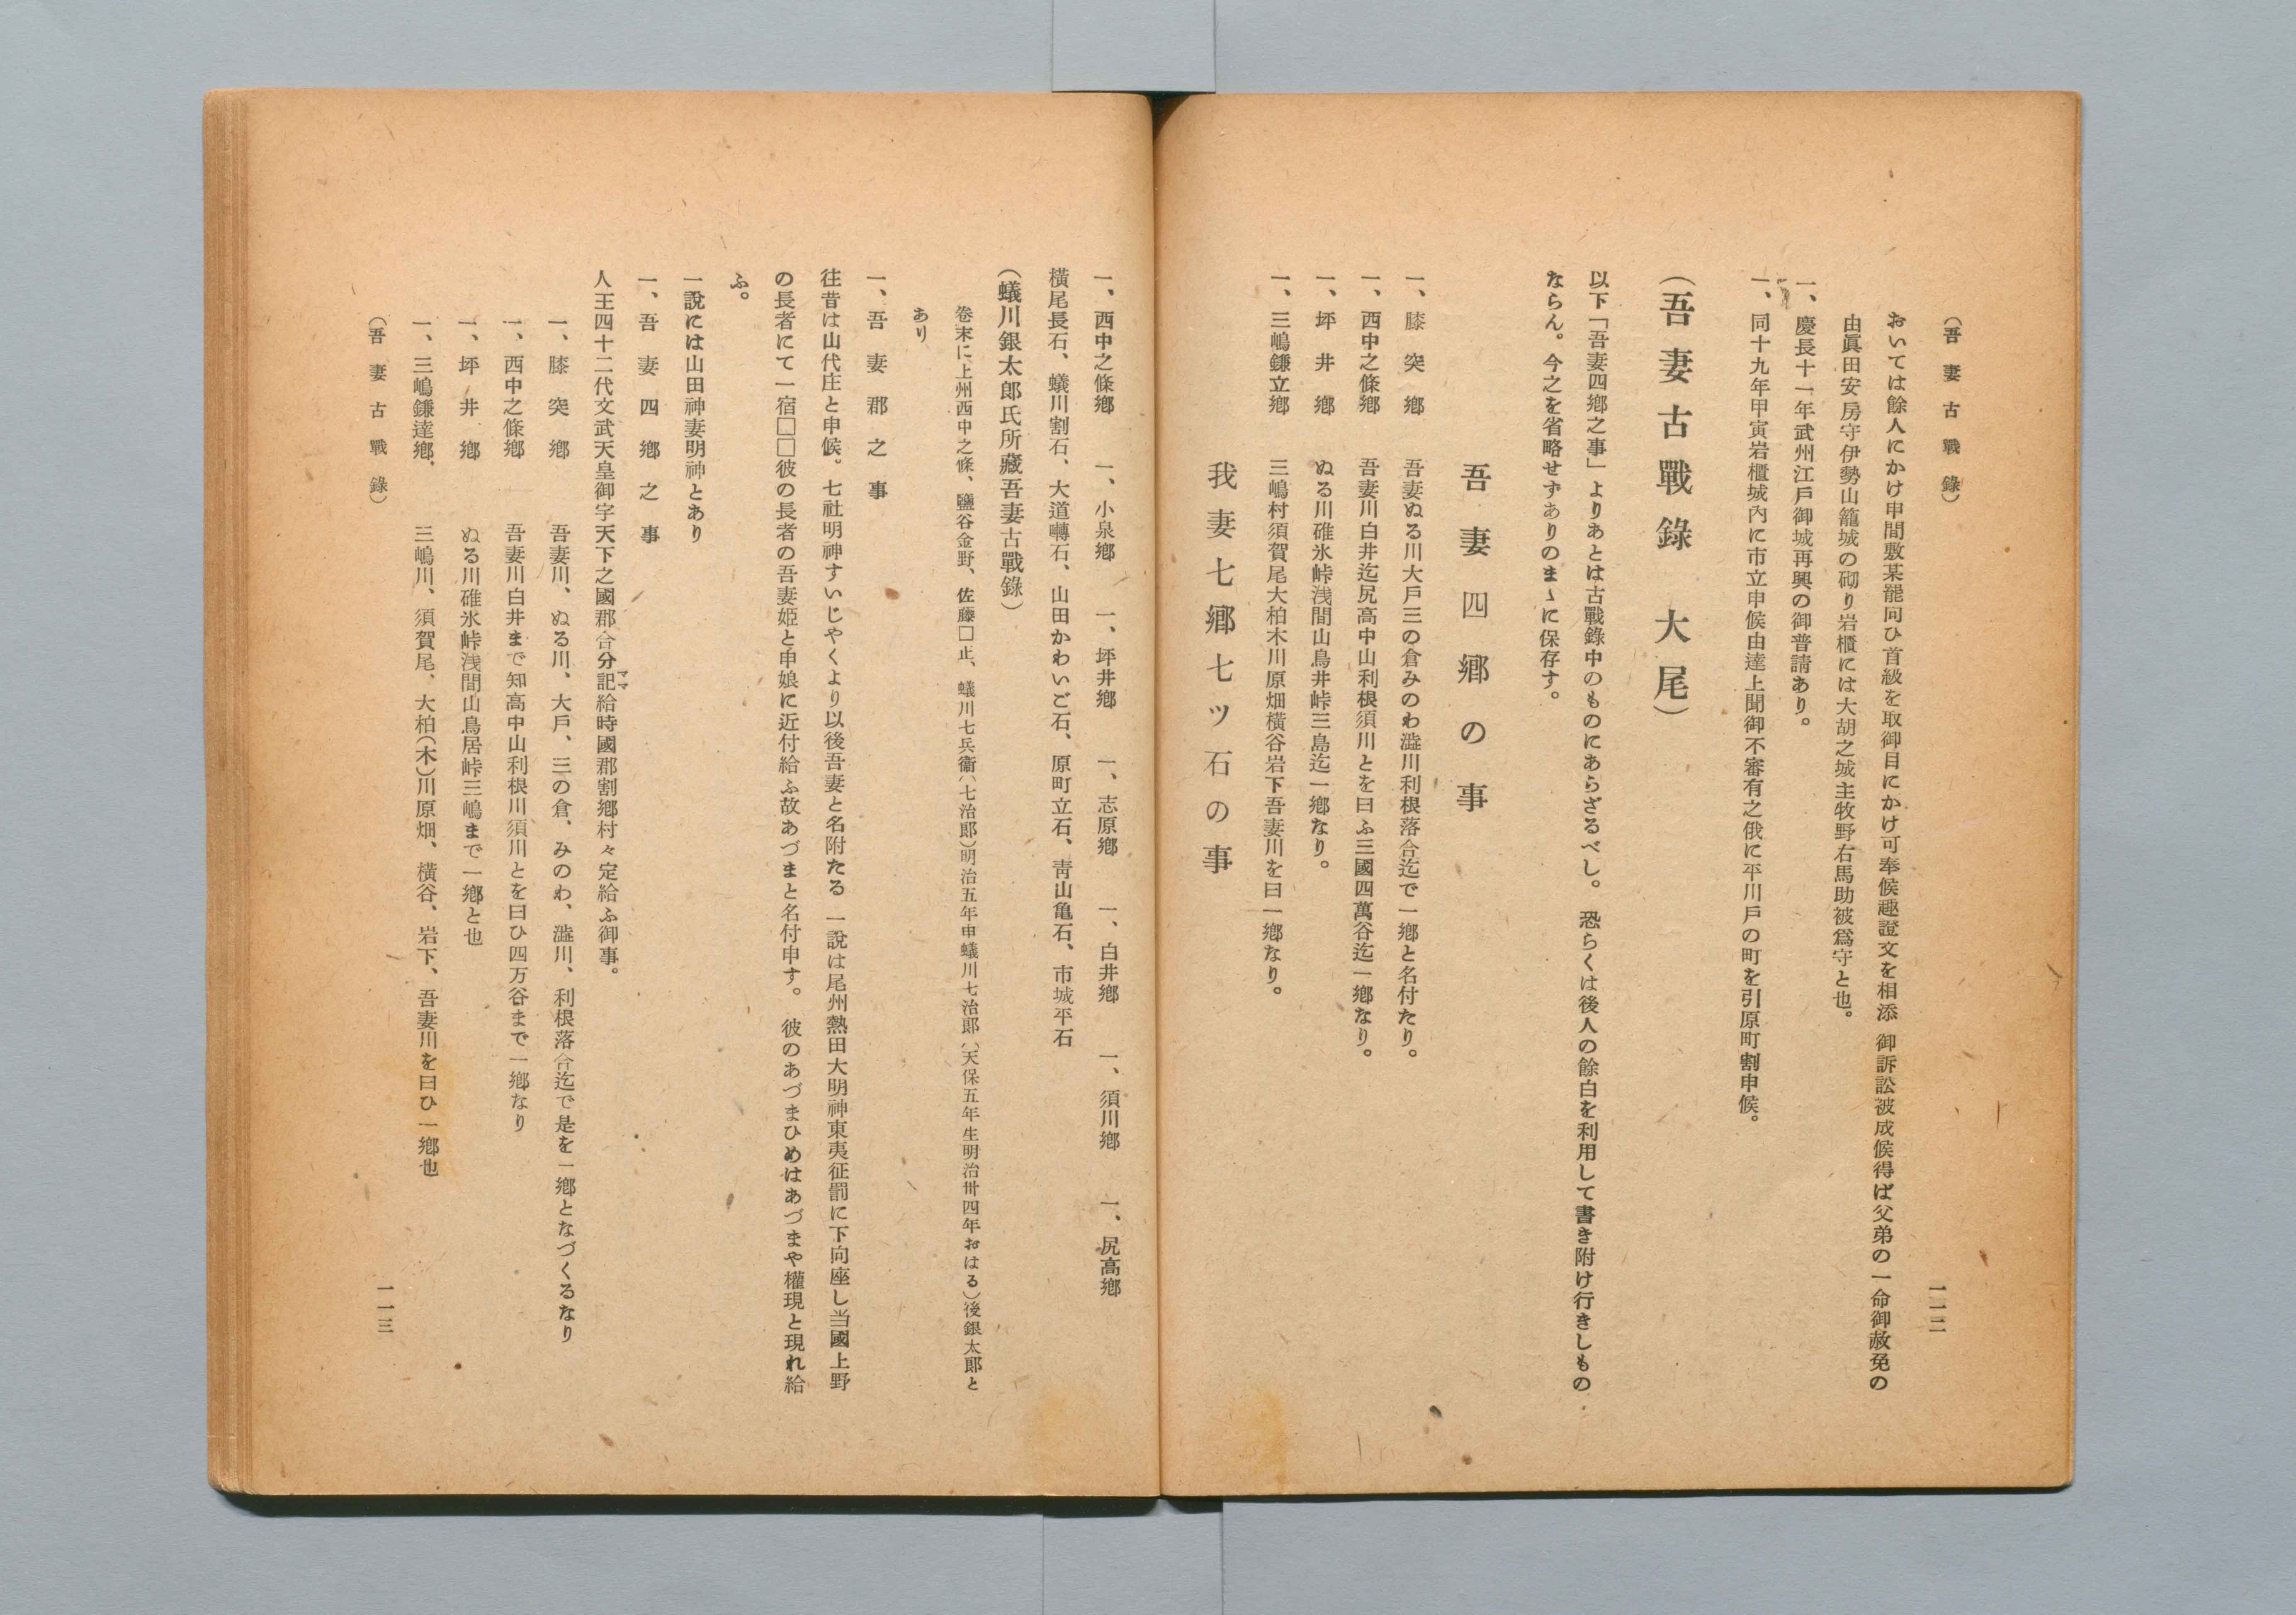 (吾妻古戰錄)
一一二
おいては餘人にかけ申間敷某罷向ひ首級を取御目にかけ可奉候趣證文を相添 御訴訟被成候得ば父弟の一命御赦免の
由眞田安房守伊勢山籠城の砌り岩櫃には大胡之城主牧野右馬助被爲守と也。
一、慶長十一年武州江戶御城再興の御普請あり。
一、同十九年甲寅岩櫃城內に市立申候由達上聞御不審有之俄に平川戶の町を引原町割申候。
(吾妻古戰錄 大尾)
以下「吾妻四鄕之事」よりあとは古戰錄中のものにあらざるべし。恐らくは後人の餘白を利用して書き附け行きしもの
ならん。今之を省略せずありのまゝに保存す。
吾妻四鄕の事
一、膝突鄕 吾妻ぬる川大戶三の倉みのわ澁川利根落合迄で一鄕と名付たり。
一、西中之條鄕 吾妻川白井迄尻高中山利根須川とを曰ふ三國四萬谷迄一鄕なり。
一、坪井鄕 ぬる川碓氷峠浅間山鳥井峠三島迄一鄕なり。
一、三嶋鎌立鄕 三嶋村須賀尾大柏木川原畑橫谷岩下吾妻川を曰一鄕なり。
我妻七鄕七ッ石の事
一、西中之條鄕 一、小泉鄕 一、坪井鄕 一、志原鄕 一、白井鄕 一、須川鄕 一、尻高鄕
橫尾長石、蟻川割石、大道囀石、山田かわいご石、原町立石、靑山亀石、市城平石
(蟻川銀太郎氏所藏吾妻古戰錄)
卷末に上州西中之條、鹽谷金野、佐藤□止、蟻川七兵衞(七治郎)明治五年申蟻川七治郎(天保五年生明治卅四年おはる)後銀太郎と
あり
一、吾妻郡之事
往昔は山代庄と申候。七社明神すいじやくより以後吾妻と名附たる 一說は尾州熱田大明神東夷征罰に下向座し当國上野
の長者にて一宿□□彼の長者の吾妻姫と申娘に近付給ふ故あづまと名付申す。彼のあづまひめはあづまや權現と現れ給
ふ。
一說には山田神妻明神とあり
一、吾妻四鄕之事
人王四十二代文武天皇御宇天下之國郡合分記給時國郡割鄕村々定給ふ御事。
ママ
一、膝突鄕 吾妻川、ぬる川、大戶、三の倉、みのわ、澁川、利根落合迄で是を一鄕となづくるなり
一、西中之條鄕 吾妻川白井まで知高中山利根川須川とを曰ひ四万谷まで一鄕なり
一、坪井鄕 ぬる川碓氷峠浅間山鳥居峠三嶋まで一鄕と也
一、三嶋鎌達鄕、 三嶋川、須賀尾、大柏(木)川原畑、橫谷、岩下、吾妻川を曰ひ一鄕也
(吾妻古戰錄)
一一三